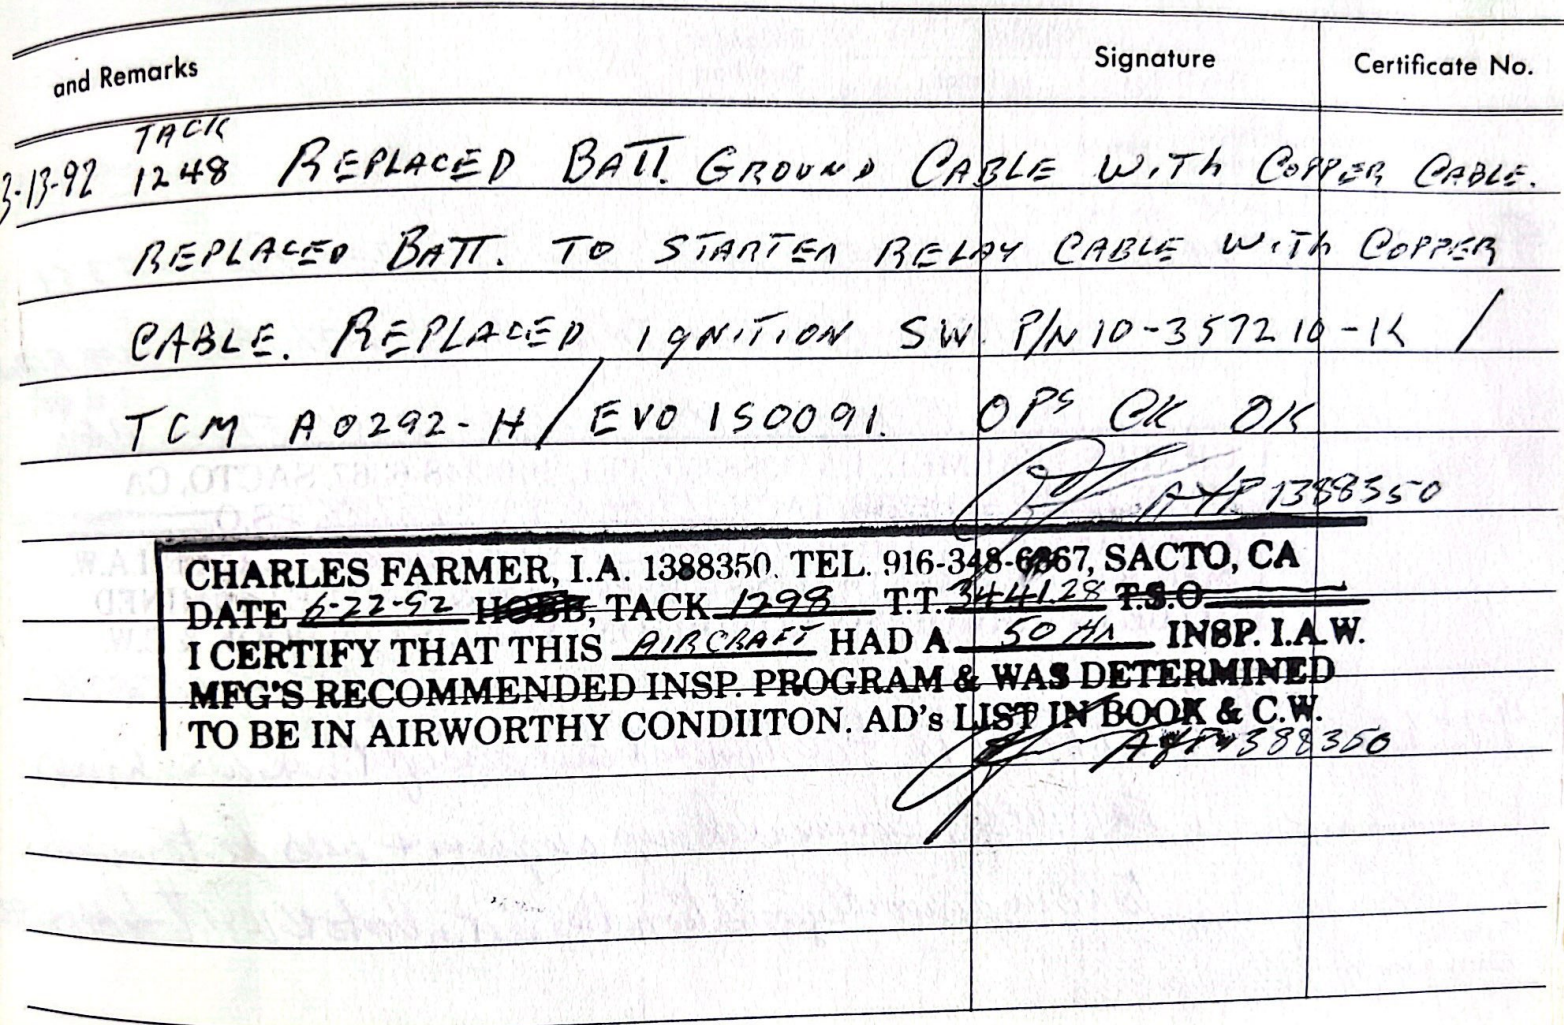 and Remarks Signature Certificate No.
TACK
3-13-92 1248 REPLACED BATT. GROUND CABLE WITH COPPER CABLE.
REPLACED BATT. TO STARTER RELAY CABLE WITH COPPER
CABLE. REPLACED IGNITION SW. P/N 10-357210-1K /
TCM A0292-H / EVO 150091. OPS CK OK
A&P 1388350
CHARLES FARMER, I.A. 1388350. TEL. 916-348-6867, SACTO, CA
DATE 6-22-92 HOBB, TACK 1298 T.T. 3441.28 T.S.O.
I CERTIFY THAT THIS AIRCRAFT HAD A 50 HR INSP. I.A.W.
MFG'S RECOMMENDED INSP. PROGRAM & WAS DETERMINED
TO BE IN AIRWORTHY CONDIITON. AD's LIST IN BOOK & C.W.
A&P 1388350